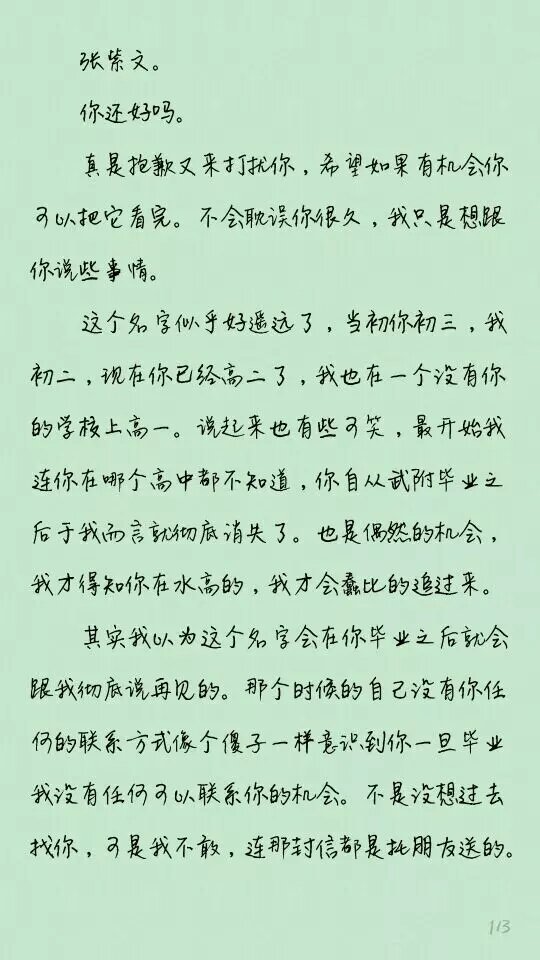 张紫文。
你还好吗。
真是抱歉又来打扰你，希望如果有机会你
可以把它看完。不会耽误你很久，我只是想跟
你说些事情。
这个名字似乎好遥远了，当初你初三，我
初二，现在你已经高二了，我也在一个没有你
的学校上高一。说起来也有些可笑，最开始我
连你在哪个高中都不知道，你自从武附毕业之
后于我而言就彻底消失了。也是偶然的机会，
我才得知你在水高的，我才会蠢比的追过来。
其实我以为这个名字会在你毕业之后就会
跟我彻底说再见的。那个时候的自己没有你任
何的联系方式像个傻子一样意识到你一旦毕业
我没有任何可以联系你的机会。不是没想过去
找你，可是我不敢，连那封信都是托朋友送的。
1/3